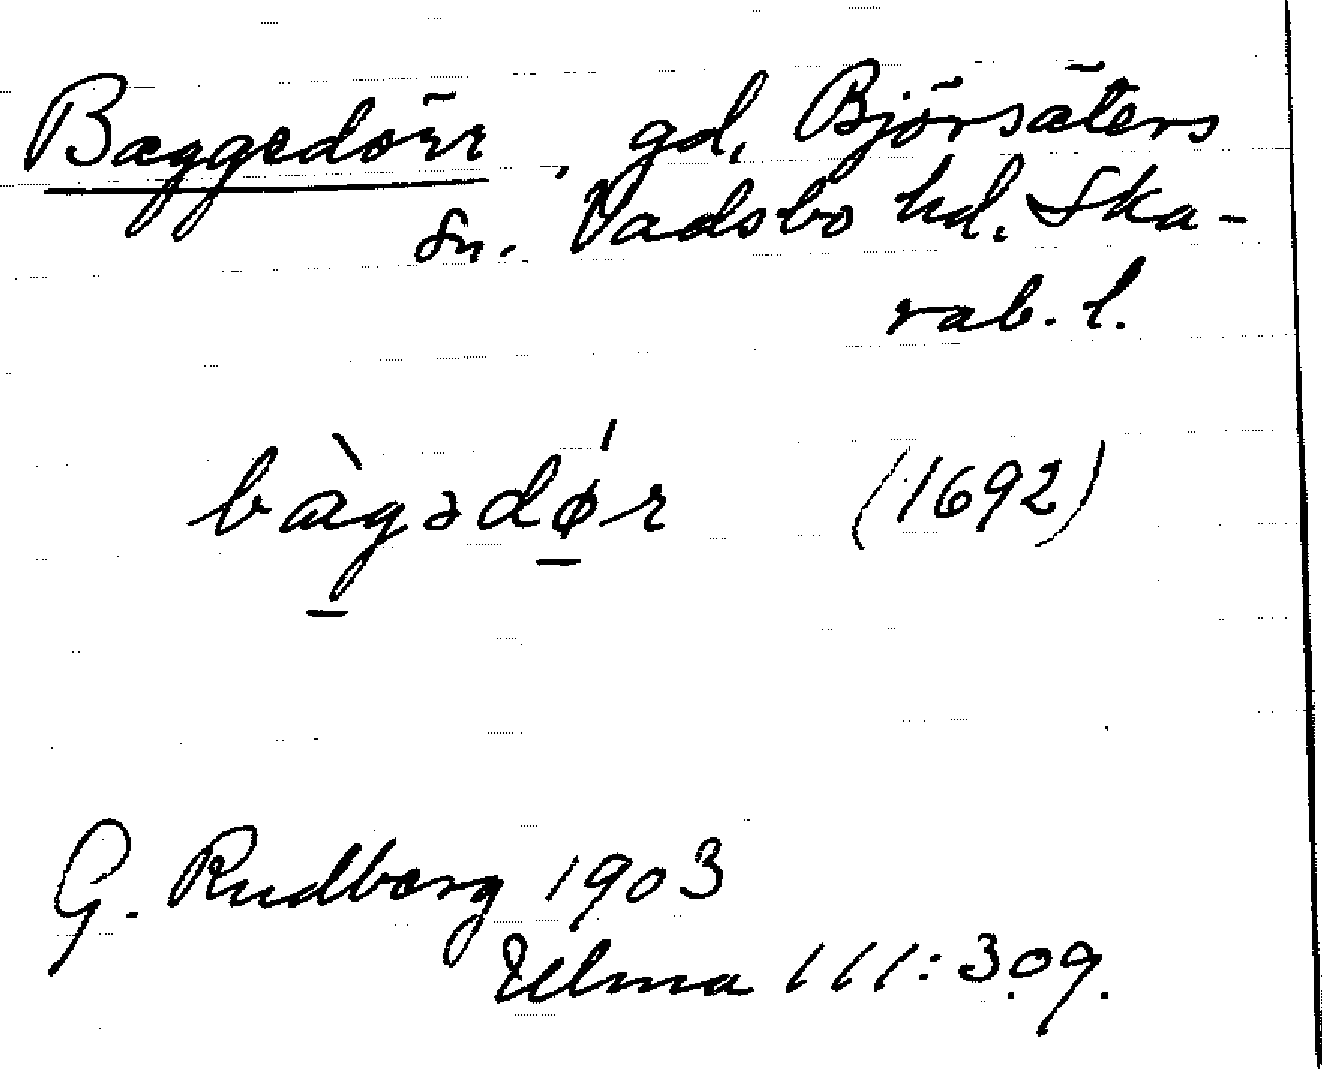 Baggedörr, gd, Björsäters
sn. Vadsbo hd. Ska-
rab. l.
bàgədǿr (1692)
G. Rudberg 1903
Ulma 111:309.